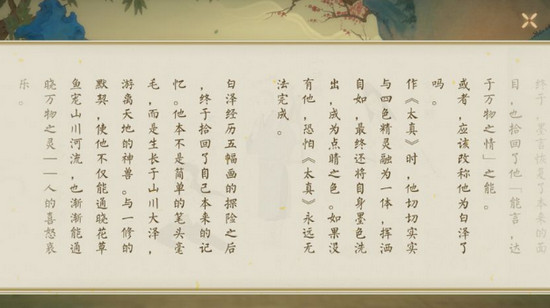 终于，墨言恢复了本来的面
目，也拾回了他「能言，达
于万物之情」之能。
或者，应该改称他为白泽了
吗。
作《太真》时，他切切实实
与四色精灵融为一体，挥洒
自如，最终还将自身墨色洗
出，成为点睛之色。如果没
有他，恐怕《太真》永远无
法完成。
白泽经历五幅画的探险之后
，终于拾回了自己本来的记
忆。他本不是简单的笔头毫
毛，而是生长于山川大泽，
游离天地的神兽。与一修的
默契，使他不仅能通晓花草
鱼宠山川河流，也渐渐能通
晓万物之灵——人的喜怒哀
乐。